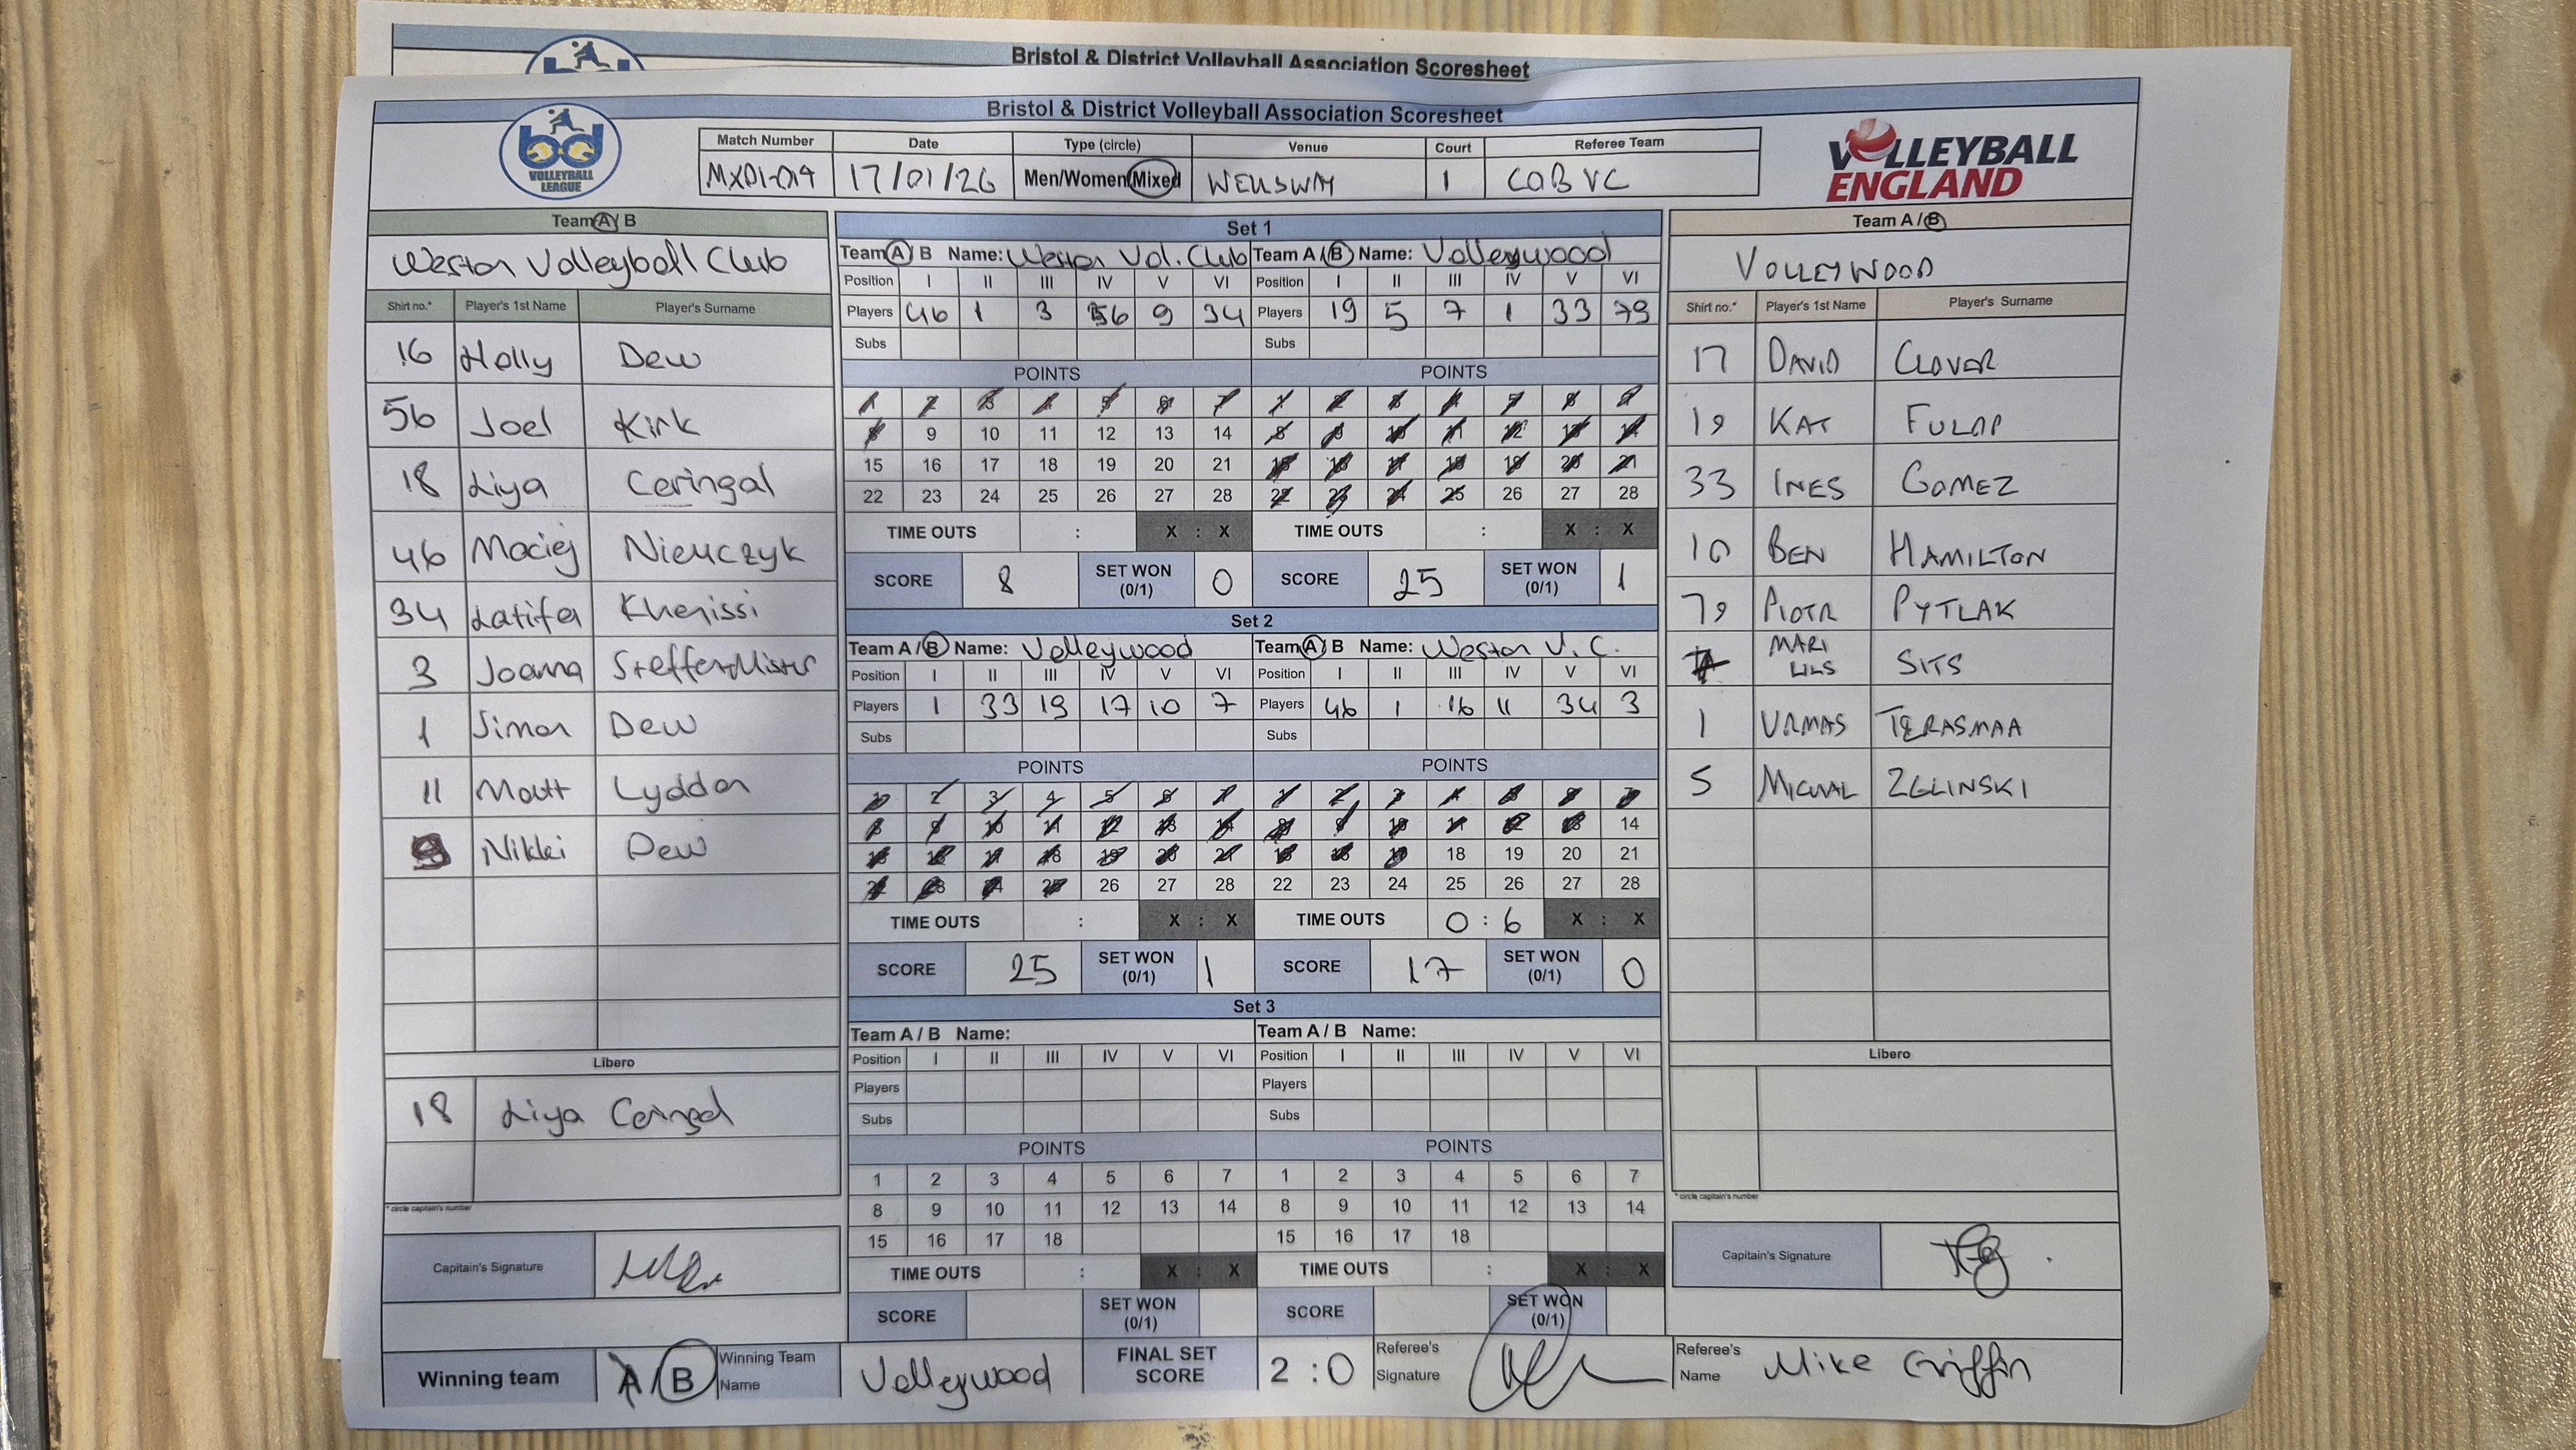 Bristol & District Volleyball Association Scoresheet
Bristol & District Volleyball Association Scoresheet
bd
VOLLEYBALL
LEAGUE
Match Number Date Type (circle) Venue Court Referee Team
MXD1-019 17/01/26 Men/Women/Mixed WELLSWAY 1 COB VC
VOLLEYBALL
ENGLAND
Team A / B
Weston Volleyball Club
Shirt no.* Player's 1st Name Player's Surname
16 Holly Dew
56 Joel Kirk
18 Liya Ceringal
46 Maciej Niemczyk
34 Latifa Khenissi
3 Joanna
1 Simon Dew
11 Matt Lyddon
9 Nikki Dew
Libero
18 Liya Ceringal
* circle captain's number
Capitain's Signature
Set 1
Team A / B Name: Weston Vol. Club Team A / B Name: Volleywood
Position I II III IV V VI Position I II III IV V VI
Players 46 1 3 56 9 34 Players 19 5 7 1 33 79
Subs Subs
POINTS POINTS
1 2 3 4 5 6 7 1 2 3 4 5 6 7
8 9 10 11 12 13 14 8 9 10 11 12 13 14
15 16 17 18 19 20 21 15 16 17 18 19 20 21
22 23 24 25 26 27 28 22 23 24 25 26 27 28
TIME OUTS : X : X TIME OUTS : X : X
SCORE 8 SET WON (0/1) 0 SCORE 25 SET WON (0/1) 1
Set 2
Team A / B Name: Volleywood Team A / B Name: Weston V. C.
Position I II III IV V VI Position I II III IV V VI
Players 1 33 19 17 10 7 Players 46 1 16 11 34 3
Subs Subs
POINTS POINTS
1 2 3 4 5 6 7 1 2 3 4 5 6 7
8 9 10 11 12 13 14 8 9 10 11 12 13 14
15 16 17 18 19 20 21 15 16 17 18 19 20 21
22 23 24 25 26 27 28 22 23 24 25 26 27 28
TIME OUTS : X : X TIME OUTS 0 : 6 X : X
SCORE 25 SET WON (0/1) 1 SCORE 17 SET WON (0/1) 0
Set 3
Team A / B Name: Team A / B Name:
Position I II III IV V VI Position I II III IV V VI
Players Players
Subs Subs
POINTS POINTS
1 2 3 4 5 6 7 1 2 3 4 5 6 7
8 9 10 11 12 13 14 8 9 10 11 12 13 14
15 16 17 18 15 16 17 18
TIME OUTS : X : X TIME OUTS : X : X
SCORE SET WON (0/1) SCORE SET WON (0/1)
Team A / B
VOLLEYWOOD
Shirt no.* Player's 1st Name Player's Surname
17 DAVID CLOVER
19 KAT FULOP
33 INES GOMEZ
10 BEN HAMILTON
79 PIOTR PYTLAK
7 MARI LIIS SITS
1 URMAS TERASMAA
5 MICHAL ZGLINSKI
Libero
* circle captain's number
Capitain's Signature
Winning team A / B Winning Team Name Volleywood FINAL SET SCORE 2 : 0 Referee's Signature Referee's Name Mike Griffin